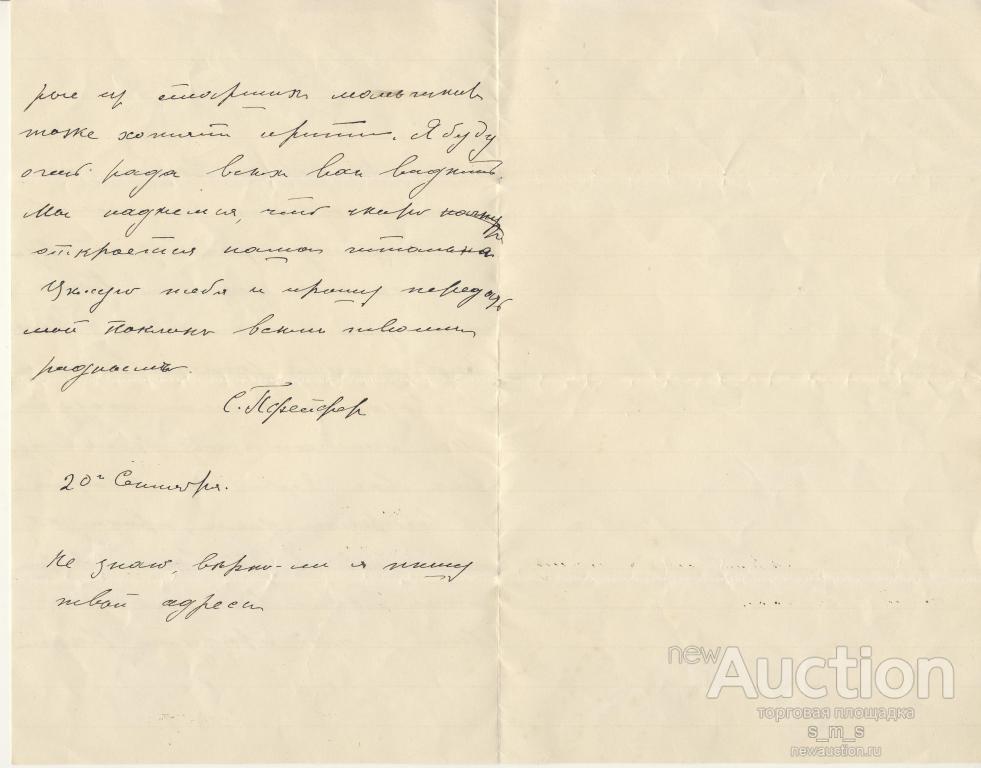 рые из старших мальчиков
тоже хотят придти. Я буду
очень рада всех вас видеть.
Мы надеемся, что скоро
откроется наша читальна
Целую тебя и прошу передать
мой поклонъ всемъ твоимъ
роднымъ.
С. Пфейфер
20го Сентября.
Не знаю, верно-ли я пишу
твой адресъ
newAuction
торговая площадка
s_m_s
newauction.ru